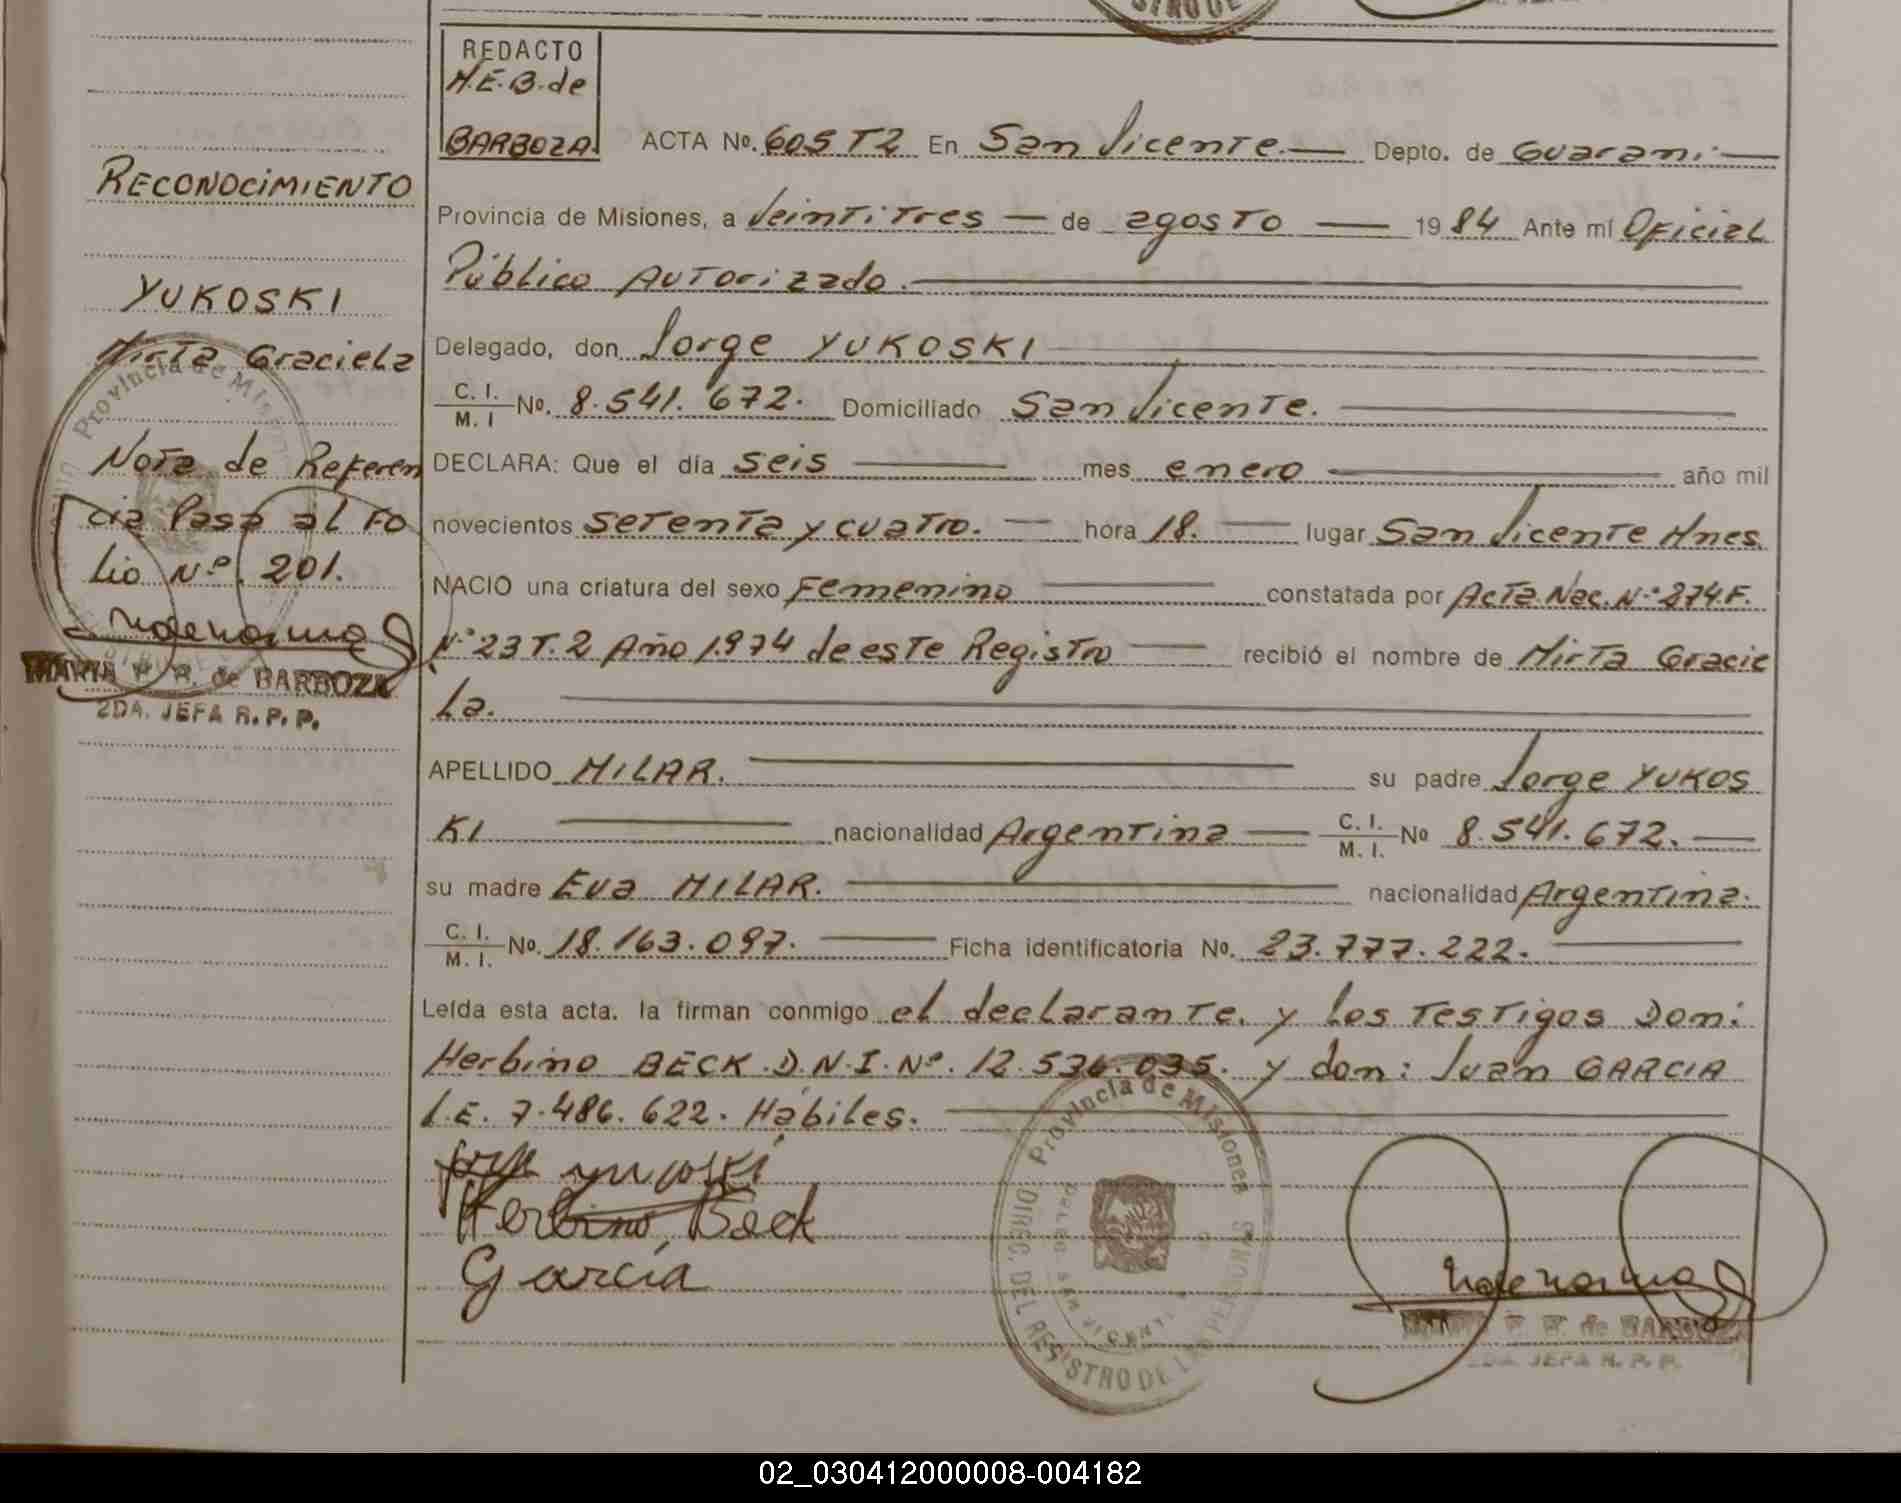 STRO DE
REDACTO
M.E.B. de
BARBOZA
ACTA Nº. 605 T2 En San Vicente. Depto. de Guaraní
RECONOCIMIENTO
Provincia de Misiones, a veintitres de agosto 1984 Ante mí Oficial
Público Autorizado.
YUKOSKI
Mirta Graciela
Delegado, don Jorge YUKOSKI
C. I. M. I Nº. 8.541.672. Domiciliado San Vicente.
Nota de Referen
DECLARA: Que el día seis mes enero año mil
cia Pasa al Fo
novecientos setenta y cuatro. hora 18. lugar San Vicente Mnes.
lio Nº 201.
NACIO una criatura del sexo Femenino constatada por Acta Nac. Nº 274.F.
Nº 23 T.2 Año 1974 de este Registro recibió el nombre de Mirta Gracie
MARIA de BARBOZA
2DA. JEFA R. P. P.
la.
APELLIDO MILAR. su padre Jorge YUKOS
KI nacionalidad Argentina C. I. M. I. Nº 8.541.672.
su madre Eva MILAR. nacionalidad Argentina.
C. I. M. I. Nº. 18.163.097. Ficha identificatoria Nº. 23.777.222.
Leída esta acta. la firman conmigo el declarante. y los testigos Don:
Herbino BECK D.N.I. Nº. 12.536.035. y don: Juan GARCIA
L.E. 7.486.622. Hábiles.
Provincia de Misiones
DIREC. DEL REGISTRO DE LAS PERSONAS
Jorge Yucoski
Herbino, Beck
Garcia
de BARBOZA
2DA. JEFA R. P. P.
02_030412000008-004182